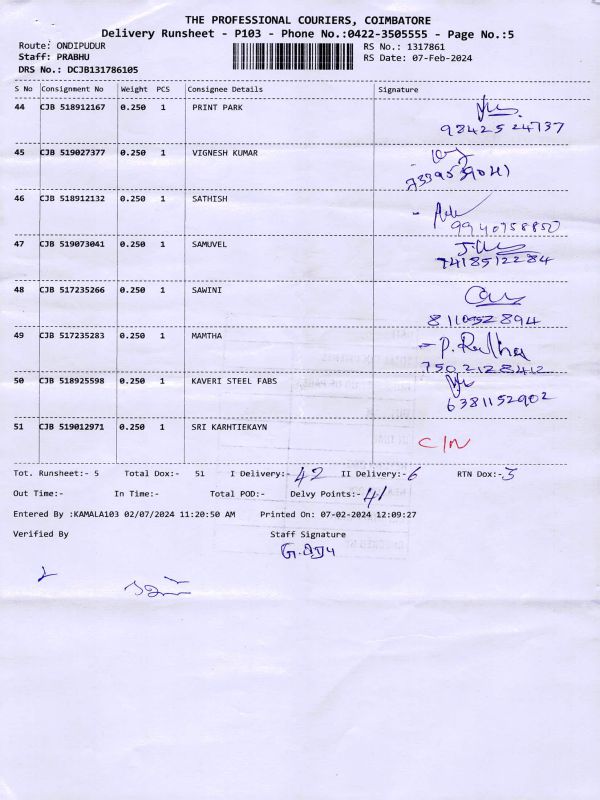 THE PROFESSIONAL COURIERS, COIMBATORE
Delivery Runsheet - P103 - Phone No.:0422-3505555 - Page No.:5
Route: ONDIPUDUR RS No.: 1317861
Staff: PRABHU RS Date: 07-Feb-2024
DRS No.: DCJB131786105
S No Consignment No Weight PCS Consignee Details Signature
44 CJB 518912167 0.250 1 PRINT PARK
9842524737
45 CJB 519027377 0.250 1 VIGNESH KUMAR
7339539041
46 CJB 518912132 0.250 1 SATHISH
9940758850
47 CJB 519073041 0.250 1 SAMUVEL
7418512284
48 CJB 517235266 0.250 1 SAWINI
8110952894
49 CJB 517235283 0.250 1 MAMTHA P. Radha
7502128412
50 CJB 518925598 0.250 1 KAVERI STEEL FABS
6381152902
51 CJB 519012971 0.250 1 SRI KARHTIEKAYN C/N
Tot. Runsheet:- 5 Total Dox:- 51 I Delivery:- 42 II Delivery:- 6 RTN Dox:- 3
Out Time:- In Time:- Total POD:- Delvy Points:- 41
Entered By :KAMALA103 02/07/2024 11:20:50 AM Printed On: 07-02-2024 12:09:27
Verified By Staff Signature